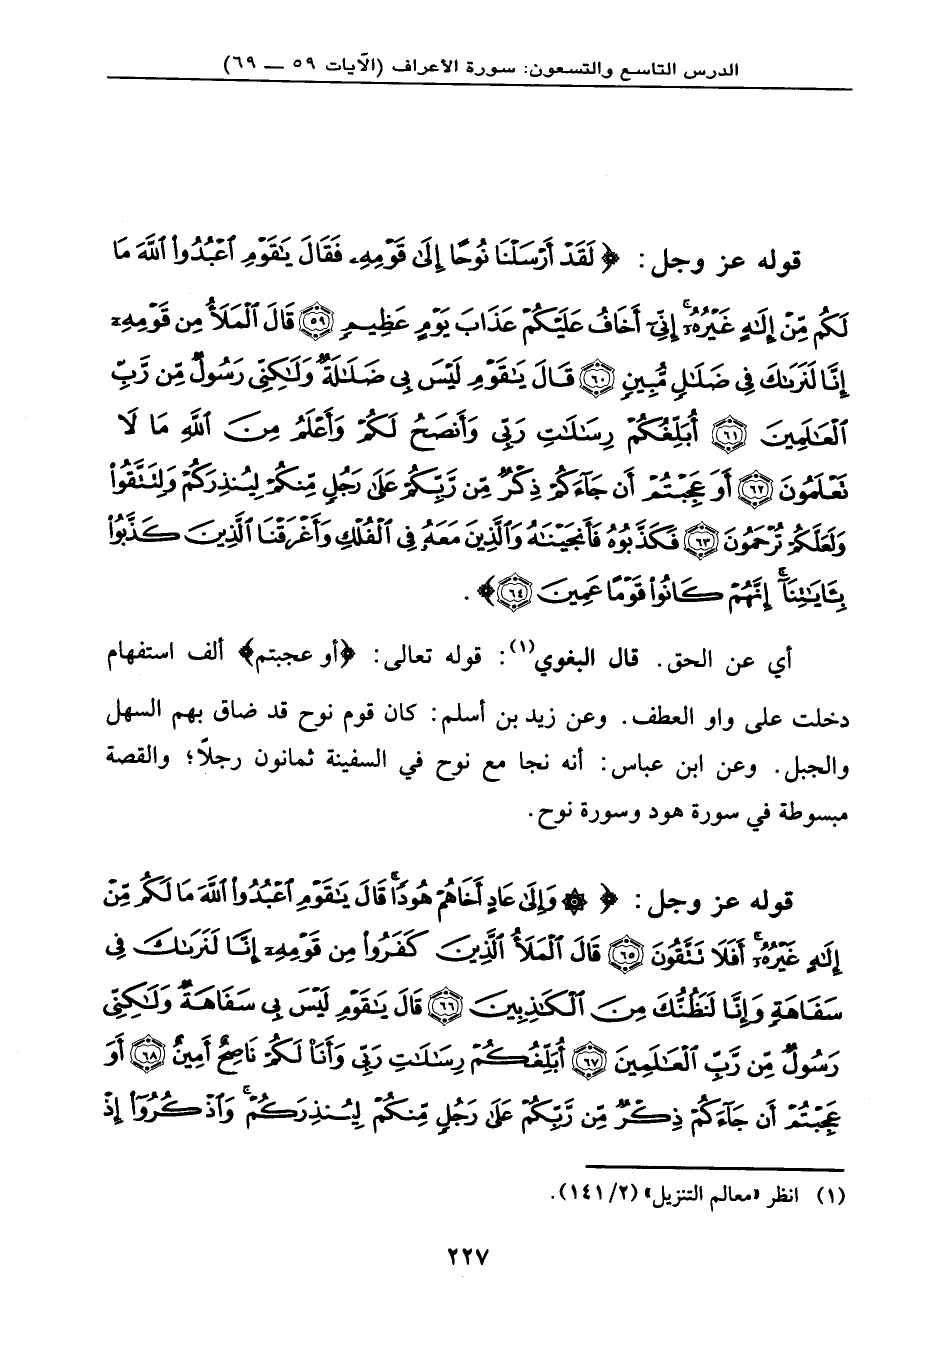 الدرس التاسع والتسعون: سورة الأعراف (الآيات ٥٩ — ٦٩)
قوله عز وجل: ﴿ لَقَدْ أَرْسَلْنَا نُوحًا إِلَىٰ قَوْمِهِۦ فَقَالَ يَٰقَوْمِ ٱعْبُدُوا۟ ٱللَّهَ مَا
لَكُم مِّنْ إِلَٰهٍ غَيْرُهُۥٓ إِنِّىٓ أَخَافُ عَلَيْكُمْ عَذَابَ يَوْمٍ عَظِيمٍ ﴿٥٩﴾ قَالَ ٱلْمَلَأُ مِن قَوْمِهِۦٓ
إِنَّا لَنَرَىٰكَ فِى ضَلَٰلٍ مُّبِينٍ ﴿٦٠﴾ قَالَ يَٰقَوْمِ لَيْسَ بِى ضَلَٰلَةٌ وَلَٰكِنِّى رَسُولٌ مِّن رَّبِّ
ٱلْعَٰلَمِينَ ﴿٦١﴾ أُبَلِّغُكُمْ رِسَٰلَٰتِ رَبِّى وَأَنصَحُ لَكُمْ وَأَعْلَمُ مِنَ ٱللَّهِ مَا لَا
تَعْلَمُونَ ﴿٦٢﴾ أَوَعَجِبْتُمْ أَن جَآءَكُمْ ذِكْرٌ مِّن رَّبِّكُمْ عَلَىٰ رَجُلٍ مِّنكُمْ لِيُنذِرَكُمْ وَلِتَتَّقُوا۟
وَلَعَلَّكُمْ تُرْحَمُونَ ﴿٦٣﴾ فَكَذَّبُوهُ فَأَنجَيْنَٰهُ وَٱلَّذِينَ مَعَهُۥ فِى ٱلْفُلْكِ وَأَغْرَقْنَا ٱلَّذِينَ كَذَّبُوا۟
بِـَٔايَٰتِنَآ ۚ إِنَّهُمْ كَانُوا۟ قَوْمًا عَمِينَ ﴿٦٤﴾ ﴾.
أي عن الحق. قال البغوي(١): قوله تعالى: ﴿أو عجبتم﴾ ألف استفهام
دخلت على واو العطف. وعن زيد بن أسلم: كان قوم نوح قد ضاق بهم السهل
والجبل. وعن ابن عباس: أنه نجا مع نوح في السفينة ثمانون رجلاً؛ والقصة
مبسوطة في سورة هود وسورة نوح.
قوله عز وجل: ﴿ ۞ وَإِلَىٰ عَادٍ أَخَاهُمْ هُودًا ۗ قَالَ يَٰقَوْمِ ٱعْبُدُوا۟ ٱللَّهَ مَا لَكُم مِّنْ
إِلَٰهٍ غَيْرُهُۥٓ ۚ أَفَلَا تَتَّقُونَ ﴿٦٥﴾ قَالَ ٱلْمَلَأُ ٱلَّذِينَ كَفَرُوا۟ مِن قَوْمِهِۦٓ إِنَّا لَنَرَىٰكَ فِى
سَفَاهَةٍ وَإِنَّا لَنَظُنُّكَ مِنَ ٱلْكَٰذِبِينَ ﴿٦٦﴾ قَالَ يَٰقَوْمِ لَيْسَ بِى سَفَاهَةٌ وَلَٰكِنِّى
رَسُولٌ مِّن رَّبِّ ٱلْعَٰلَمِينَ ﴿٦٧﴾ أُبَلِّغُكُمْ رِسَٰلَٰتِ رَبِّى وَأَنَا۠ لَكُمْ نَاصِحٌ أَمِينٌ ﴿٦٨﴾ أَوَ
عَجِبْتُمْ أَن جَآءَكُمْ ذِكْرٌ مِّن رَّبِّكُمْ عَلَىٰ رَجُلٍ مِّنكُمْ لِيُنذِرَكُمْ ۚ وَٱذْكُرُوٓا۟ إِذْ
(١) انظر «معالم التنزيل» (١٤١/٢).
٢٢٧